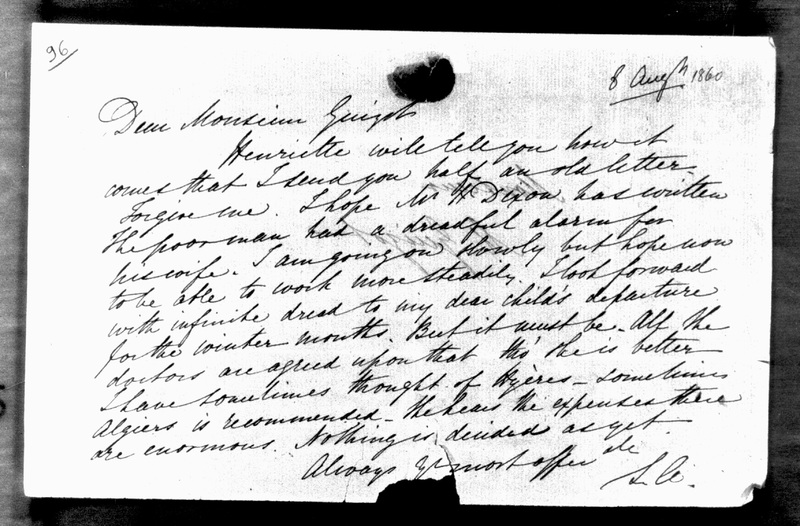 96
8 Augst 1860
Dear Monsieur Guizot
Henriette will tell you how it
comes that I send you half an old letter.
Forgive me. I hope Mr H Dixon has written
The poor man had a dreadful alarm for
his wife. I am going on slowly but hope now
to be able to work more steadily. I look forward
with infinite dread to my dear child's departure
for the winter months. But it must be. All the
doctors are agreed upon that tho' she is better
I have sometimes thought of Hyères – sometimes
Algiers is recommended – the expenses there
are enormous. Nothing is decided as yet.
Always yr most affec